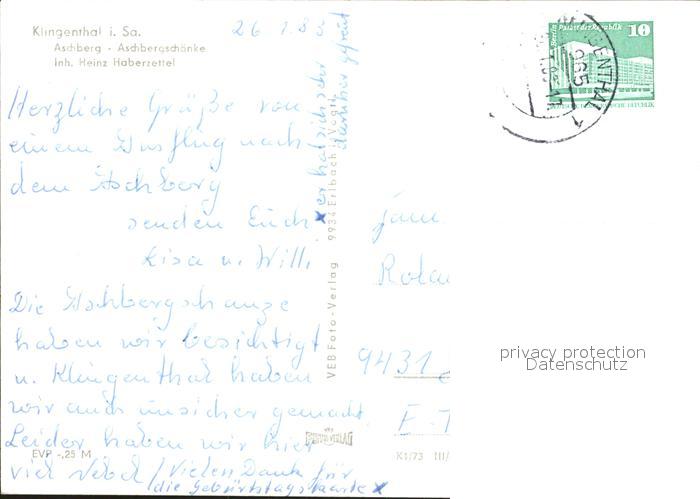 Klingenthal i. Sa.
Aschberg - Aschbergschänke
Inh. Heinz Haberzettel
26.1.83
Herzliche Grüße von
einem Ausflug nach
dem Aschberg
senden Euch
Lisa u. Willi
Die Aschbergschanze
haben wir besichtigt
u. Klingenthal haben
wir auch unsicher gemacht.
Leider haben wir hier
viel Nebel / Vielen Dank für
die Geburtstagskarte x
x er hat sich sehr
darüber gefreut
EVP -,25 M
VEB Foto-Verlag 9934 Erlbach i. Vogtl.
K1/73 III/
Fam.
9431
10
Berlin Palast der Republik
965
privacy protection
Datenschutz